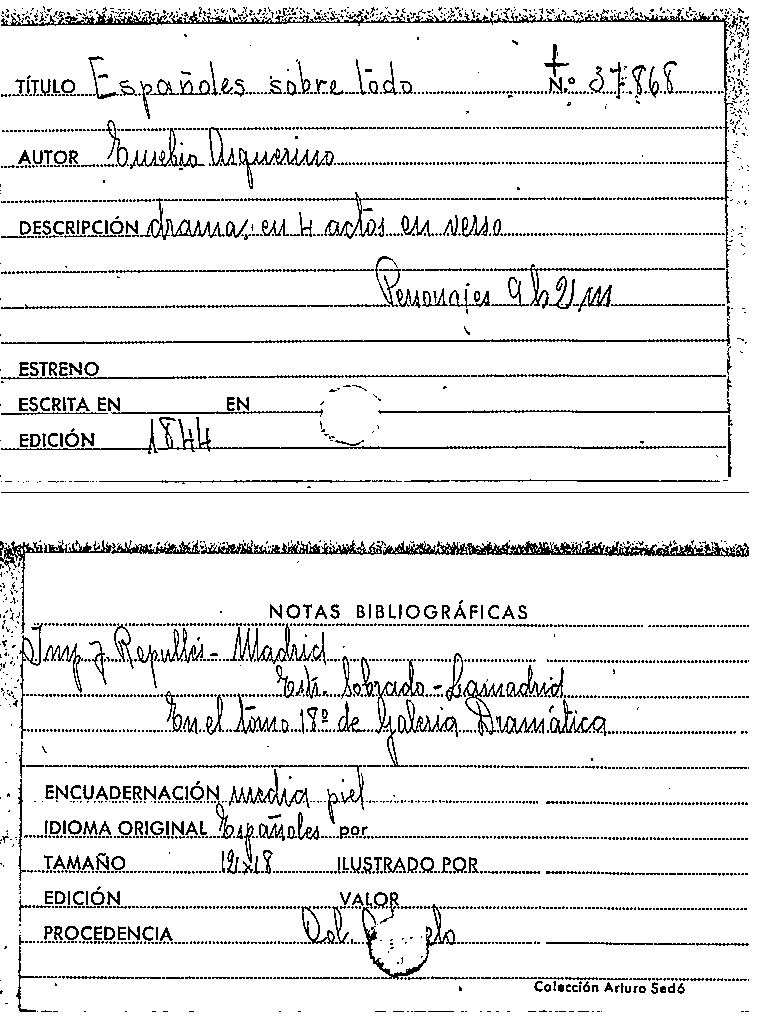 TÍTULO Españoles sobre todo N.º 37868
AUTOR Eusebio Asquerino
DESCRIPCIÓN drama: en 4 actos en verso
Personajes 9 h 2 m
ESTRENO
ESCRITA EN EN
EDICIÓN 1844
NOTAS BIBLIOGRÁFICAS
Imp J. Repullés - Madrid
Estr. Sobrado - Lamadrid
En el tomo 18º de Galeria Dramática
ENCUADERNACIÓN media piel
IDIOMA ORIGINAL Españoles por
TAMAÑO 12x18 ILUSTRADO POR
EDICIÓN VALOR
PROCEDENCIA
Colección Arturo Sedó